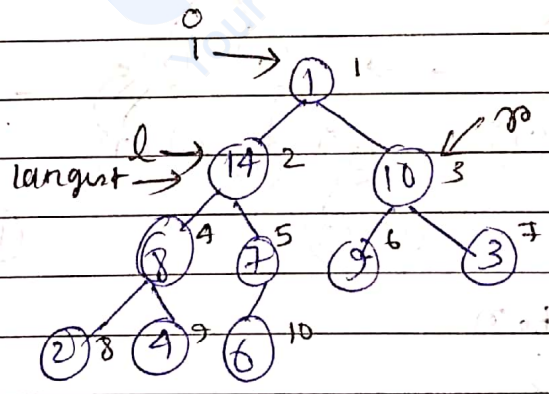 i → 1 1
l → 14 2 10 3 r
largest →
8 4 7 5 9 6 3 7
2 8 4 9 6 10